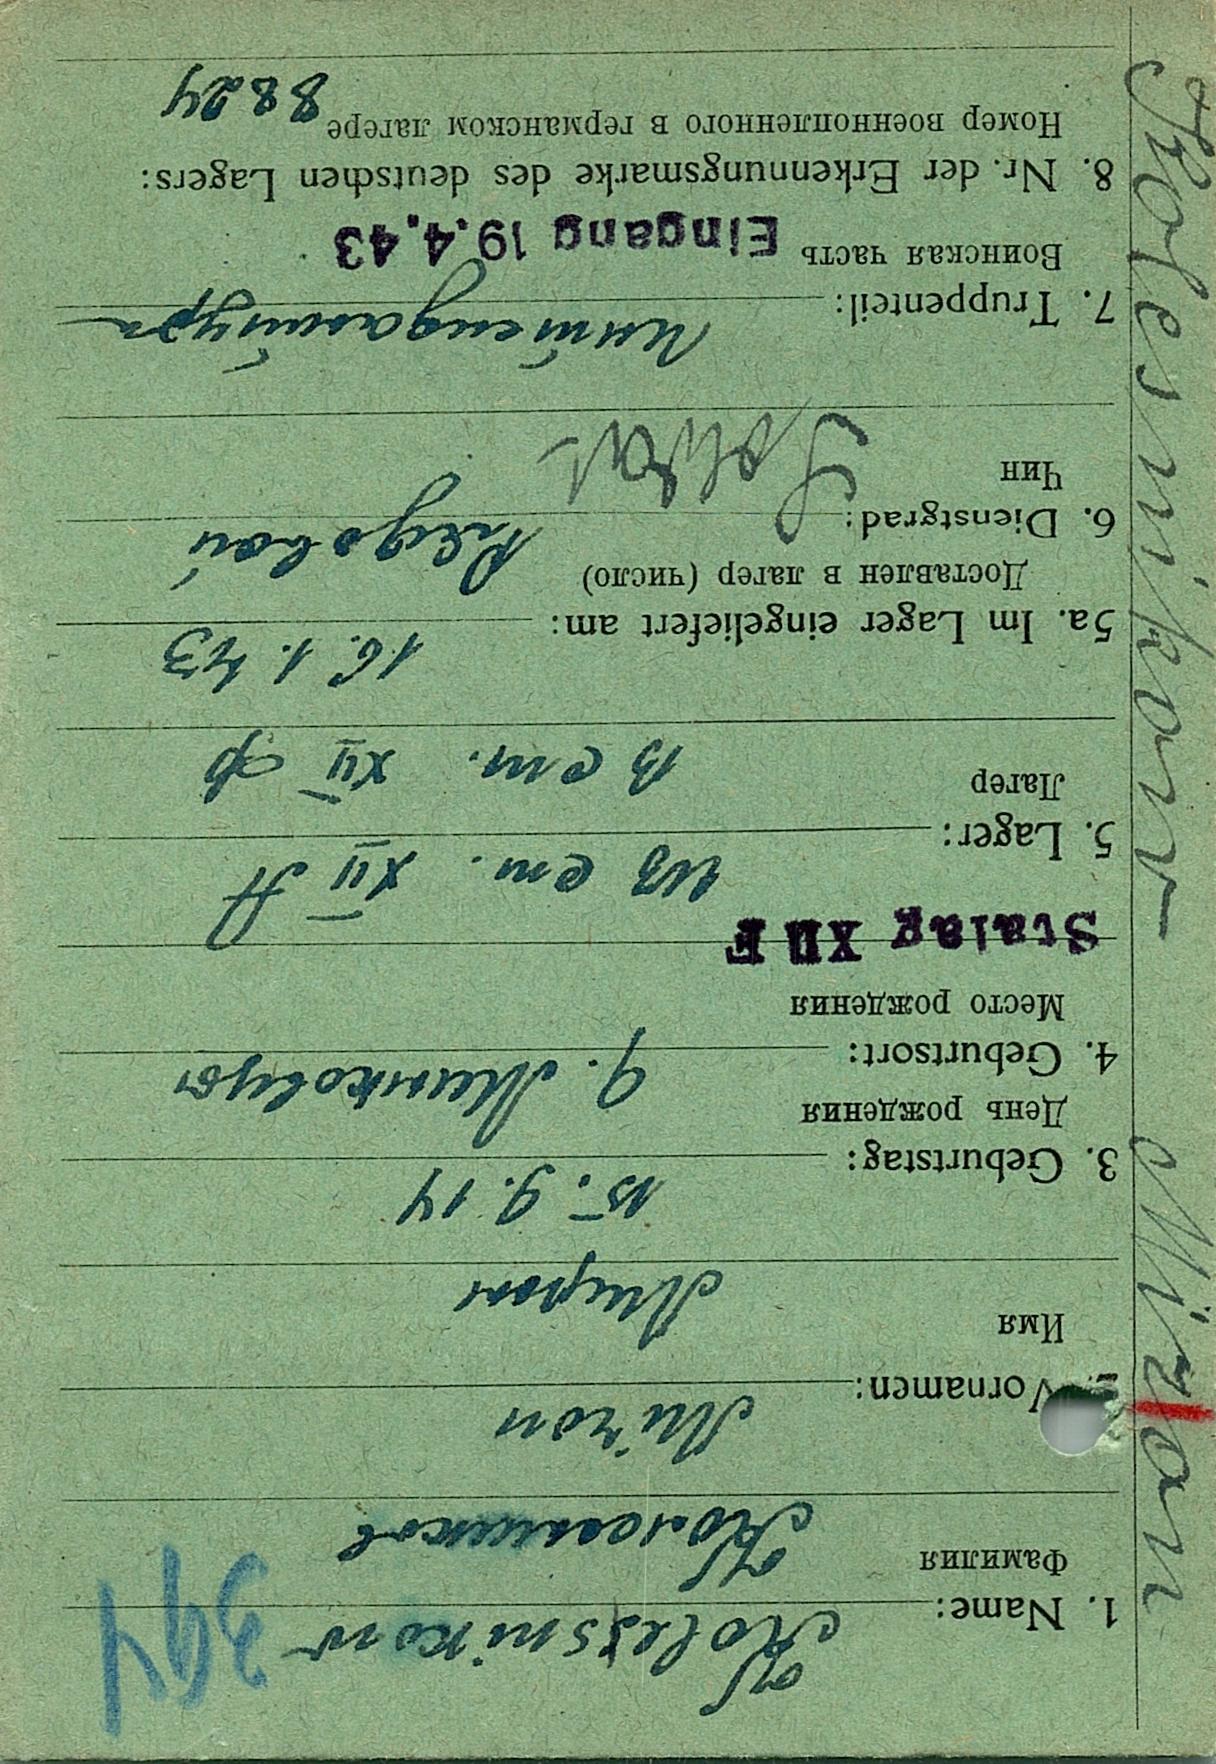 394
1. Name: Kolessnikow
Фамилия Колесников
2. Vornamen: Miron
Имя Мирон
3. Geburtstag: 15. 9. 14
День рождения
4. Geburtsort: д.
Место рождения
Stalag XII F
Из ст. XII А
5. Lager:
Лагер В ст. XII Ф
16. 1. 43
5a. Im Lager eingeliefert am:
Доставлен в лагер (число)
Рядовой
6. Dienstgrad: Soldat
Чин
Интендантура
7. Truppenteil:
Воинская часть Eingang 19.4.43
8. Nr. der Erkennungsmarke des deutschen Lagers:
Номер военнопленного в германском лагере 8824
Kolesnikow Miron